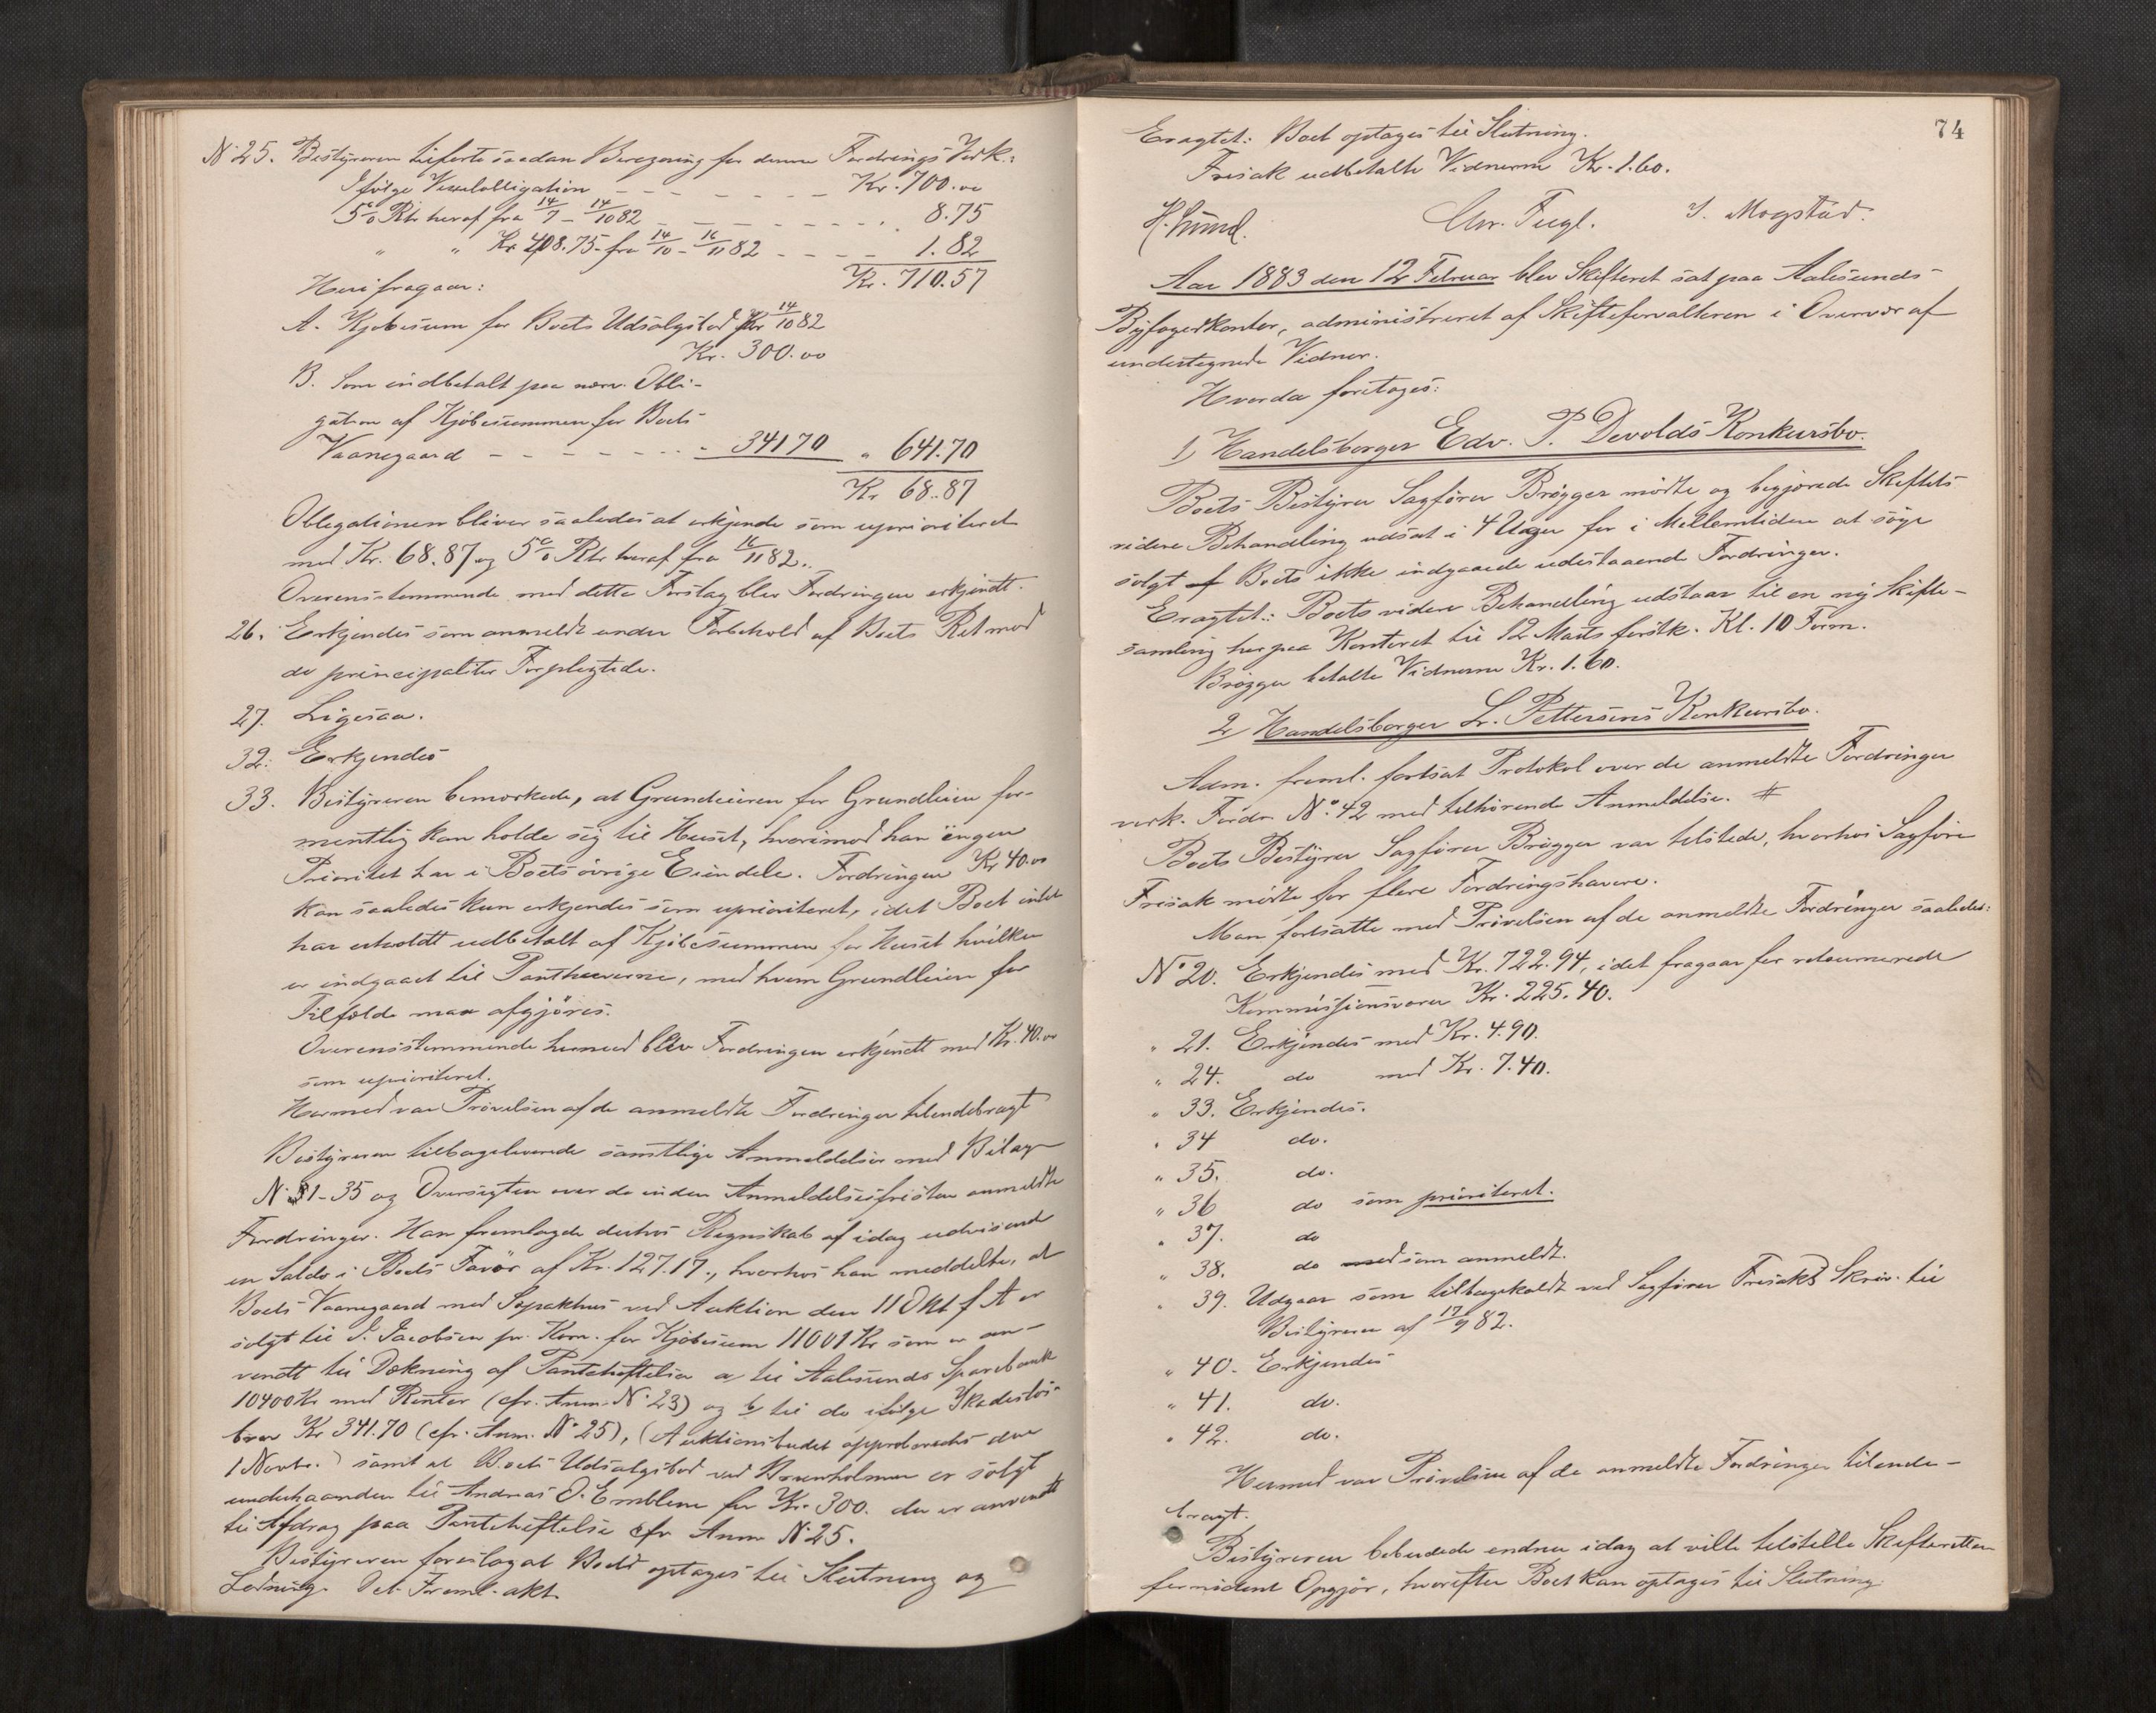 N. 25. Bestyreren tilførte saadan Beregning for denne Fordrings Vedk.:
Ifølge Vexelobligation - - - - - - Kr. 700.00
5% Rtr heraf fra 14/7 - 14/10 82 - - - - - - 8.75
" " Kr. 408.75 fra 14/10 - 16/11 82 - - - - 1.82
Kr. 710.57
Heri fragaar:
A. Kjøbesum for Boets Udsalgsbod 14/10 82
Kr. 300.00
B. Som indbetalt paa nærv. Obli-
gation af Kjøbesummen for Boets
Vaanegaard - - - - - - - 341 70 " 641.70
Kr. 68.87
Obligationen bliver saaledes at erkjende som uprioriteret
med Kr. 68.87 og 5% Rtr heraf fra 16/11 82.
Overensstemmende med dette Forslag blev Fordringen erkjendt.
26. Erkjendes som anmeldt under Forbehold af Boets Ret mod
de principaliter Forpligtede.
27. Ligesaa.
32. Erkjendes
33. Bestyreren bemærkede, at Grundeieren for Grundleien for-
mentlig kan holde sig til Huset, hvorimod han ingen
Prioritet har i Boets øvrige Eiendele. Fordringen Kr 40.00
kan saaledes kun erkjendes som uprioriteret, idet Boet intet
har erholdt udbetalt af Kjøbesummen for Huset hvilken
er indgaaet til Panthaverne, med hvem Grundleien for
Tilfælde maa afgjøres.
Overensstemmende hermed blev Fordringen erkjendt med Kr. 40.00
som uprioriteret.
Hermed var Prøvelsen af de anmeldte Fordringer tilendebragt
Bestyreren tilbageleverede samtlige Anmeldelser med Bilag
N. 1-35 og Oversigten over de inden Anmeldelsesfristen anmeldte
Fordringer. Han fremlagde derhos Regnskab af idag udvisende
en Saldo i Boets Favør af Kr. 127.17., hvorhos han meddelte, at
Boets Vaanegaard med Søpakhus ved Auktion den 11 Okt f A er
solgt til J. Jacobsen pr. Kom. for Kjøbesum 11001 Kr som er an-
vendt til Dækning af Pantehæftelser a til Aalesunds Sparebank
10400 Kr med Renter (cfr. Anm. N. 23) og b til do ifølge Skadesløs-
brev Kr 341.70 (cfr. Anm. N. 25), (Auktionsbudet approberedes den
1 Novbr.) samt at Boets Udsalgsbod ved Brunholmen er solgt
underhaanden til Andreas O. Emblem for Kr. 300. der er anvendt
til Afdrag paa Pantehæftelse cfr Anm N. 25.
Bestyreren foreslog at Boet optages til Slutning og
Lodning. Det Freml. akt.
74
Eragtet: Boet optages til Slutning.
Frisak udbetalte Vidnerne Kr. 1.60.
H. Lund. Chr. Fugl. I. Mogstad.
Aar 1883 den 12 Februar blev Skifteret sat paa Aalesunds
Byfogedkontor, administreret af Skifteforvalteren i Overvær af
undertegnede Vidner.
Hvorda foretoges:
1) Handelsborger Edv. P. Devolds Konkursbo.
Boets Bestyrer Sagfører Brøgger mødte og begjærede Skiftets
videre Behandling udsat i 4 Uger for i Mellemtiden at søge
solgt af Boets ikke indgaaede udestaaende Fordringer.
Eragtet: Boets videre Behandling udstaar til en ny Skifte-
samling her paa Kontoret til 12 Marts førstk. Kl. 10 Form.
Brøgger betalte Vidnerne Kr. 1.60.
2) Handelsborger L. Pettersens Konkursbo.
Adm. freml. fortsat Protokol over de anmeldte Fordringer
vedk. Fordr. No. 42 med tilhørende Anmeldelse. #
Boets Bestyrer Sagfører Brøgger var tilstede, hvorhos Sagfører
Frisak mødte for flere Fordringshavere.
Man fortsatte med Prøvelsen af de anmeldte Fordringer saaledes:
No 20. Erkjendes med Kr. 722.94, idet fragaar for retournerede
Kommissionsvarer Kr. 225.40.
" 21. Erkjendes med Kr. 4.90.
" 24. do med Kr. 7.40.
" 33. Erkjendes.
" 34 do.
" 35. do.
" 36 do som prioriteret.
" 37. do
" 38. do med som anmeldt.
" 39. Udgaar som tilbagekaldt ved Sagfører Frisaks Skriv. til
Bestyreren af 17/9 82.
" 40. Erkjendes
" 41. do.
" 42. do.
Hermed var Prøvelsen af de anmeldte Fordringer tilende-
bragt.
Bestyreren bebudede endnu idag at ville tilstille Skifteretten
fornødent Opgjør, hvorefter Boet kan optages til Slutning.